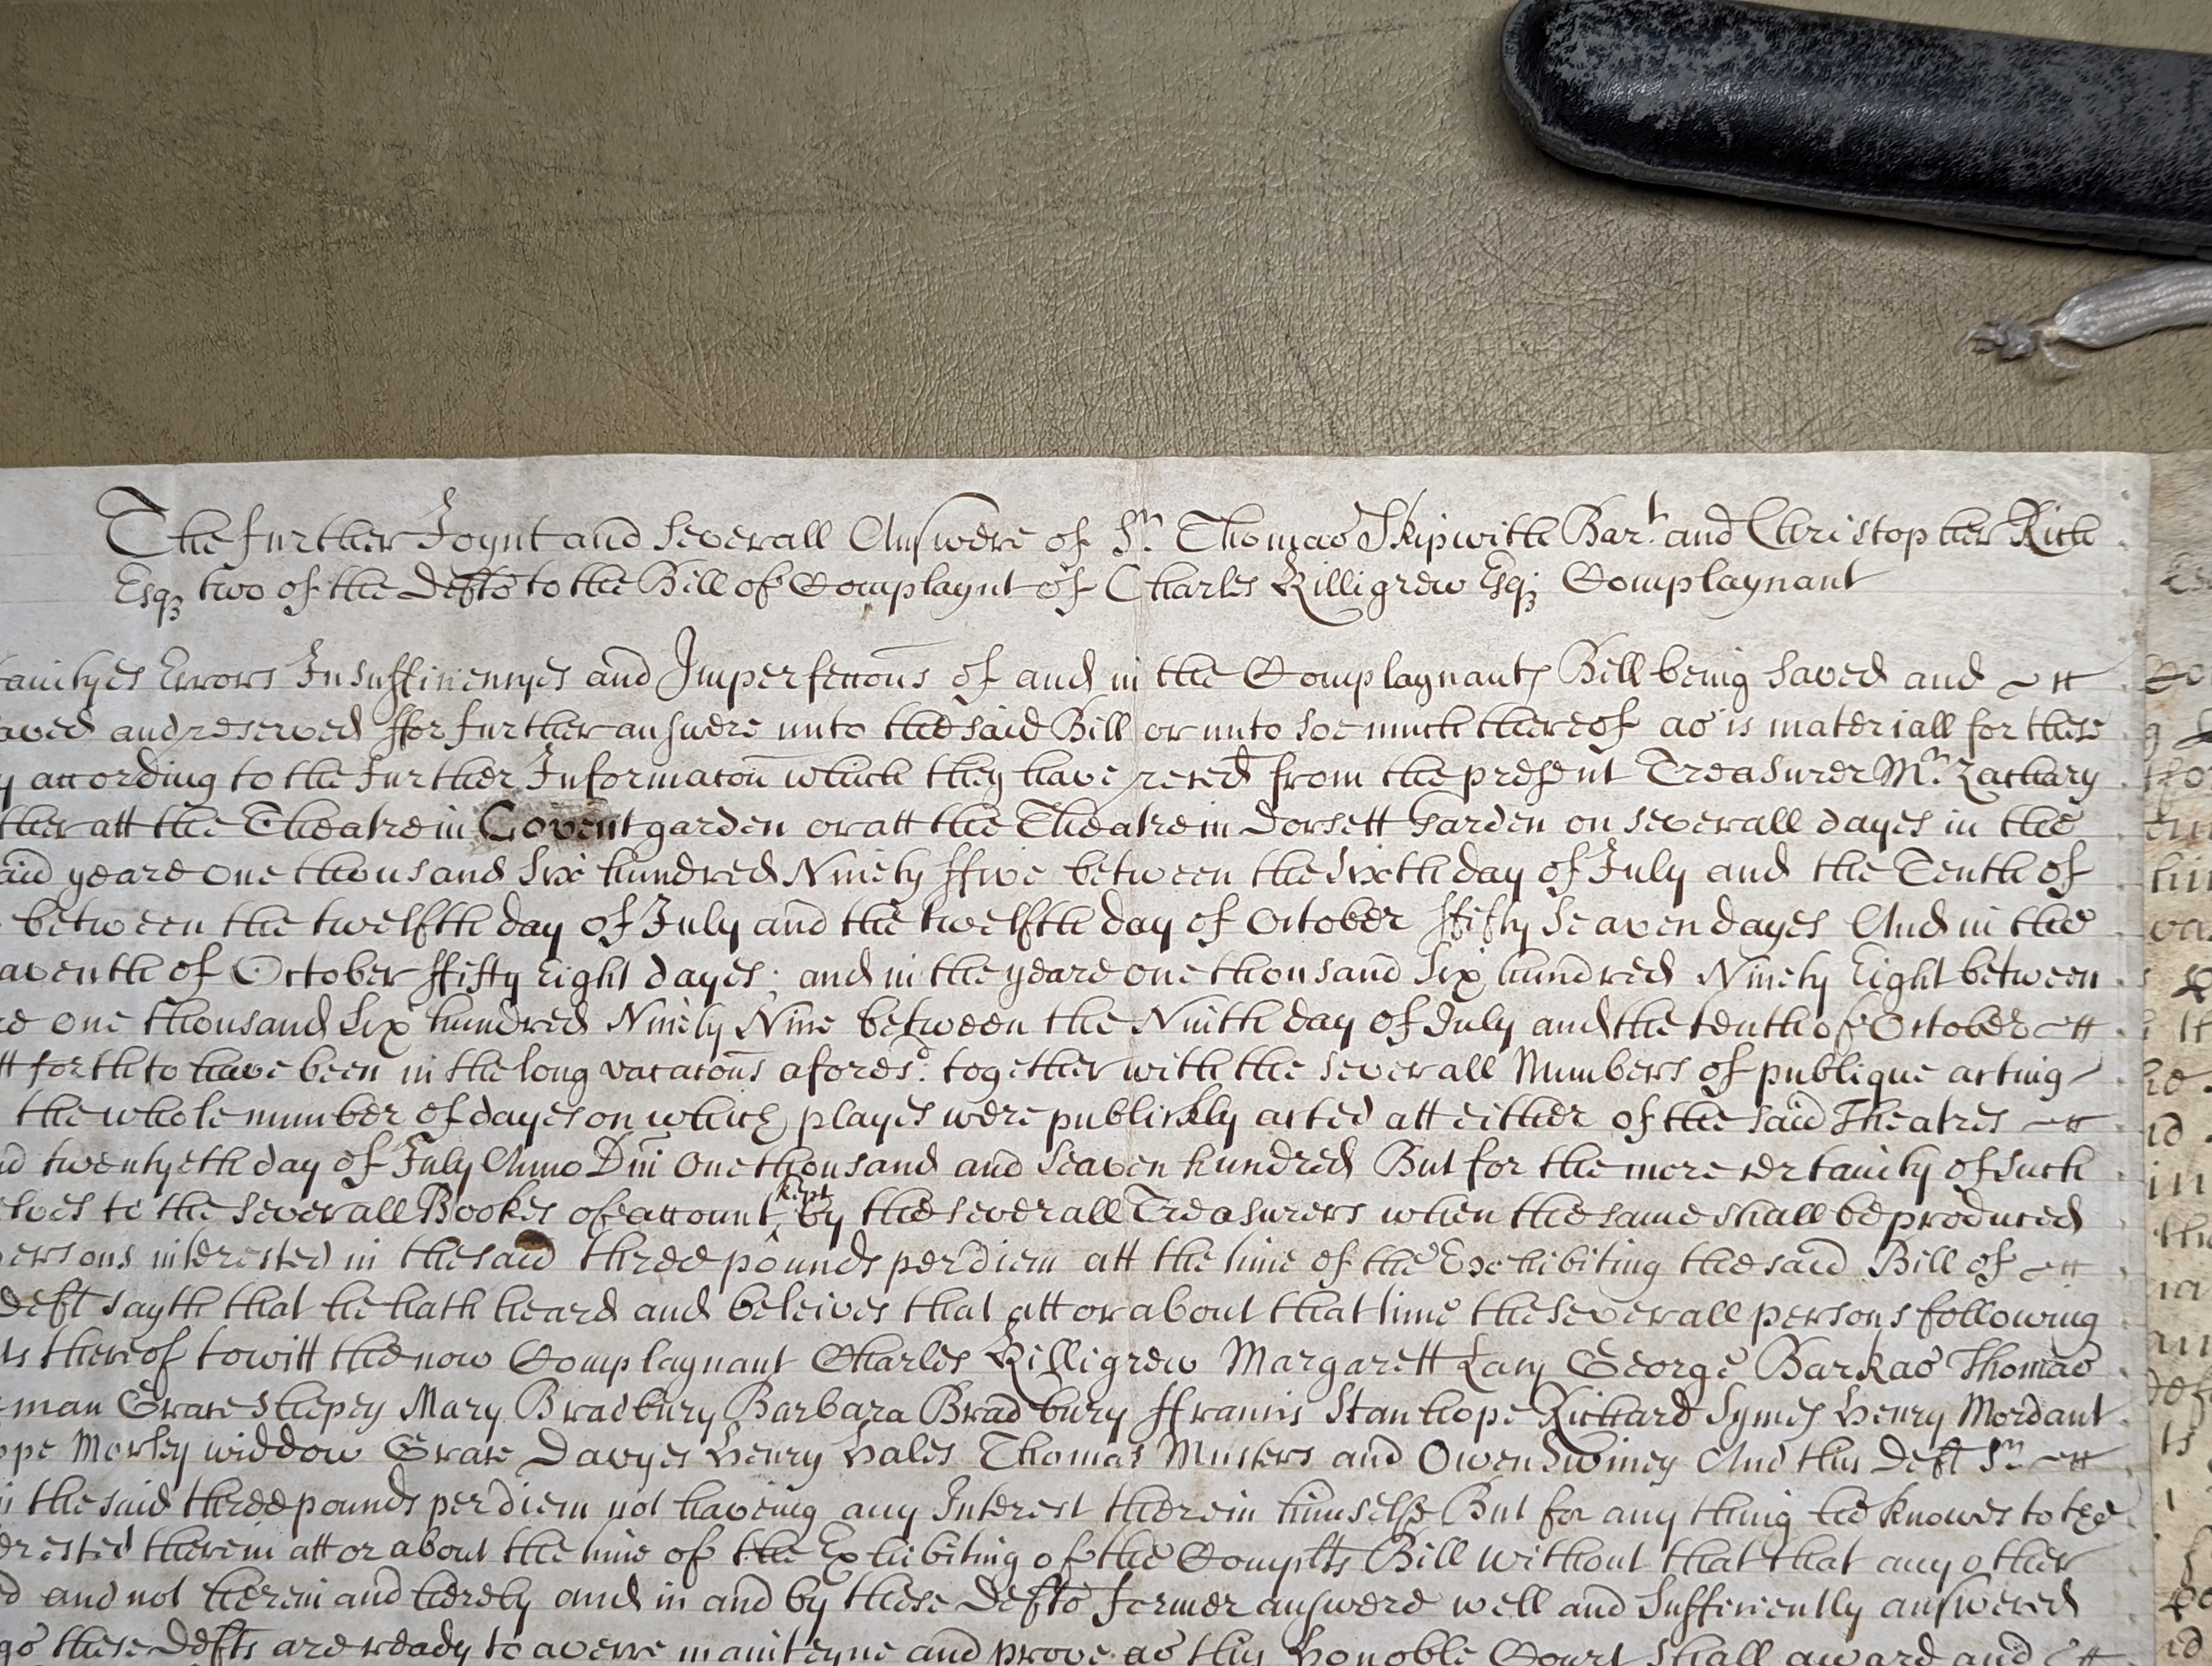 The further Joynt and severall Answere of Sr. Thomas Skipwith Bart. and Christopher Rich
Esqz two of the Defts to the Bill of Complaynt of Charles Killigrew Esqz Complaynant
taintyes Errors Insufficiencyes and Imperfeccons of and in the Complaynants Bill being saved and
aved and reserved ffor further answere unto the said Bill or unto soe much thereof as is materiall for these
y according to the further Informacon which they have reced from the present Treasurer Mr. Zachary
ther att the Theatre in Covent garden or att the Theatre in Dorsett Garden on severall dayes in the
aid yeare one thousand six hundred Ninety ffive between the sixth day of July and the Tenth of
between the twelfth day of July and the twelfth day of October ffifty seaven dayes And in the
aventh of October ffifty eight dayes; and in the yeare one thousand six hundred Ninety Eight between
re one thousand six hundred Ninety Nine between the Ninth day of July and the tenth of October
tt forth to have been in the long vacacons aforesd. together with the severall Numbers of publique acting
the whole number of dayes on which playes were publickly acted att either of the said Theatres
nd twentyeth day of July Anno Dni one thousand and seaven hundred But for the more certainty of such
elves to the severall Bookes of account kept by the severall Treasurers when the same shall be produced
ersons interested in the said three pounds per diem att the time of the Exhibiting the said Bill of
Deft sayth that he hath heard and beleives that att or about that time the severall persons following
ts thereof towitt the now Complaynant Charles Killigrew Margarett Lacy George Barkas Thomas
man Grace Shepey Mary Bradbury Barbara Bradbury ffrancis Stanhope Richard Symes Henry Mordant
ope Morley widdow Grace Davyes Henry Hales Thomas Musters and Owen Swiney And this Deft Sr.
in the said three pounds per diem not having any Interest therein himselfe But for any thing he knowes to the
erested therein att or about the time of the Exhibiting of the Complts Bill without that that any other
d and not herein and hereby and in and by these Defts former answere well and sufficiently answered
gs these Defts are ready to averre mainteyne and prove as this Honoble Court shall award and